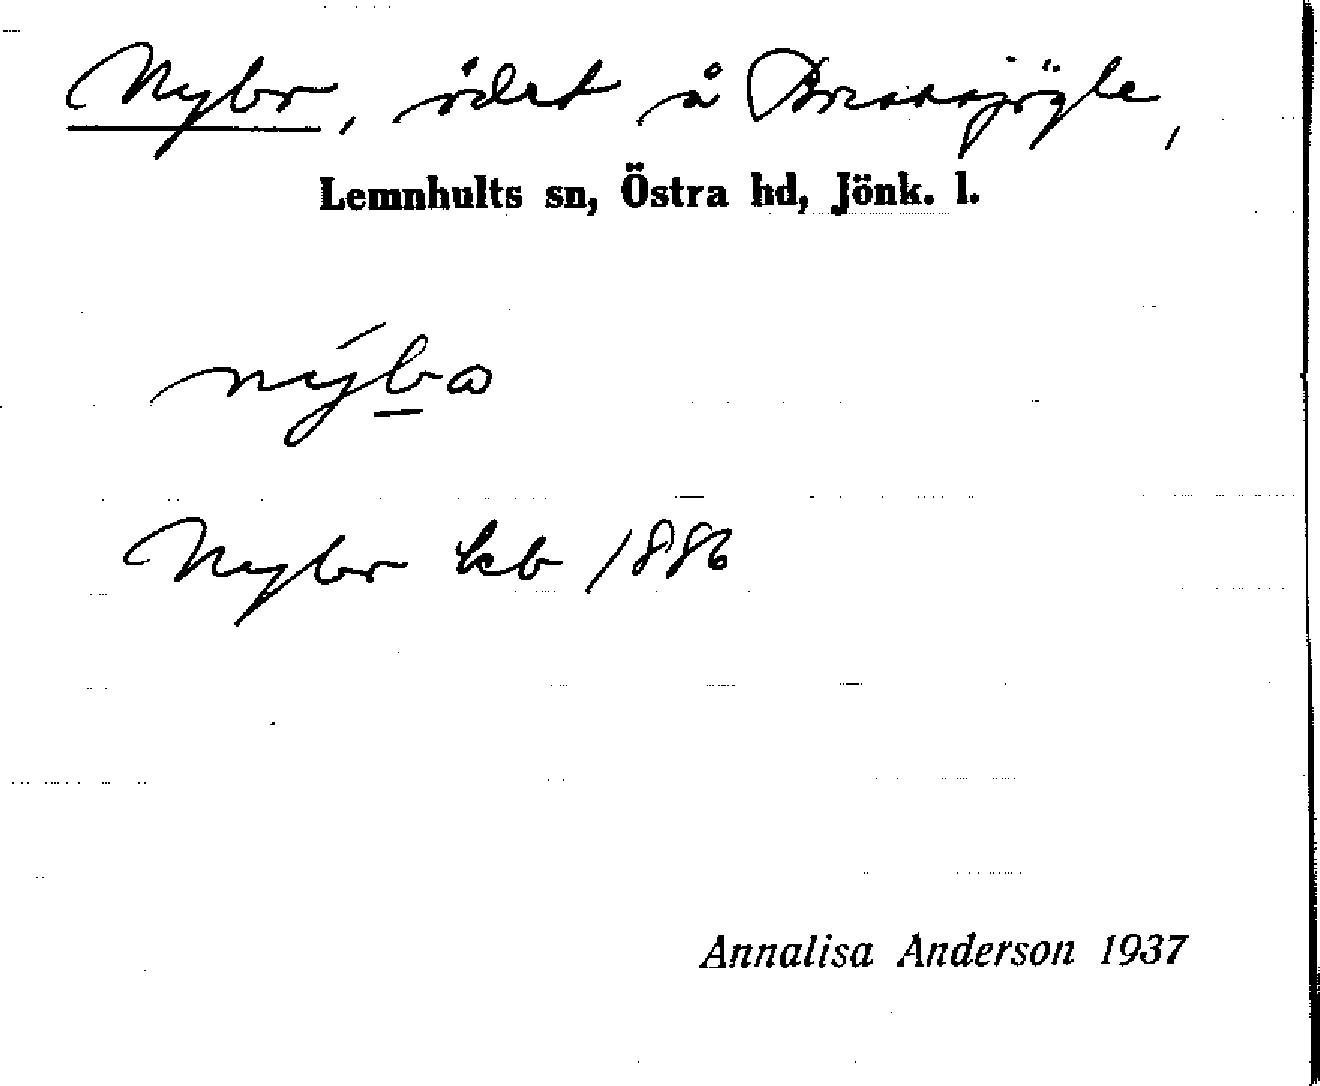 Nybo, ödet å Brossjögle,
Lemnhults sn, Östra hd, Jönk. l.
nýbω
Nybo kb 1886
Annalisa Anderson 1937